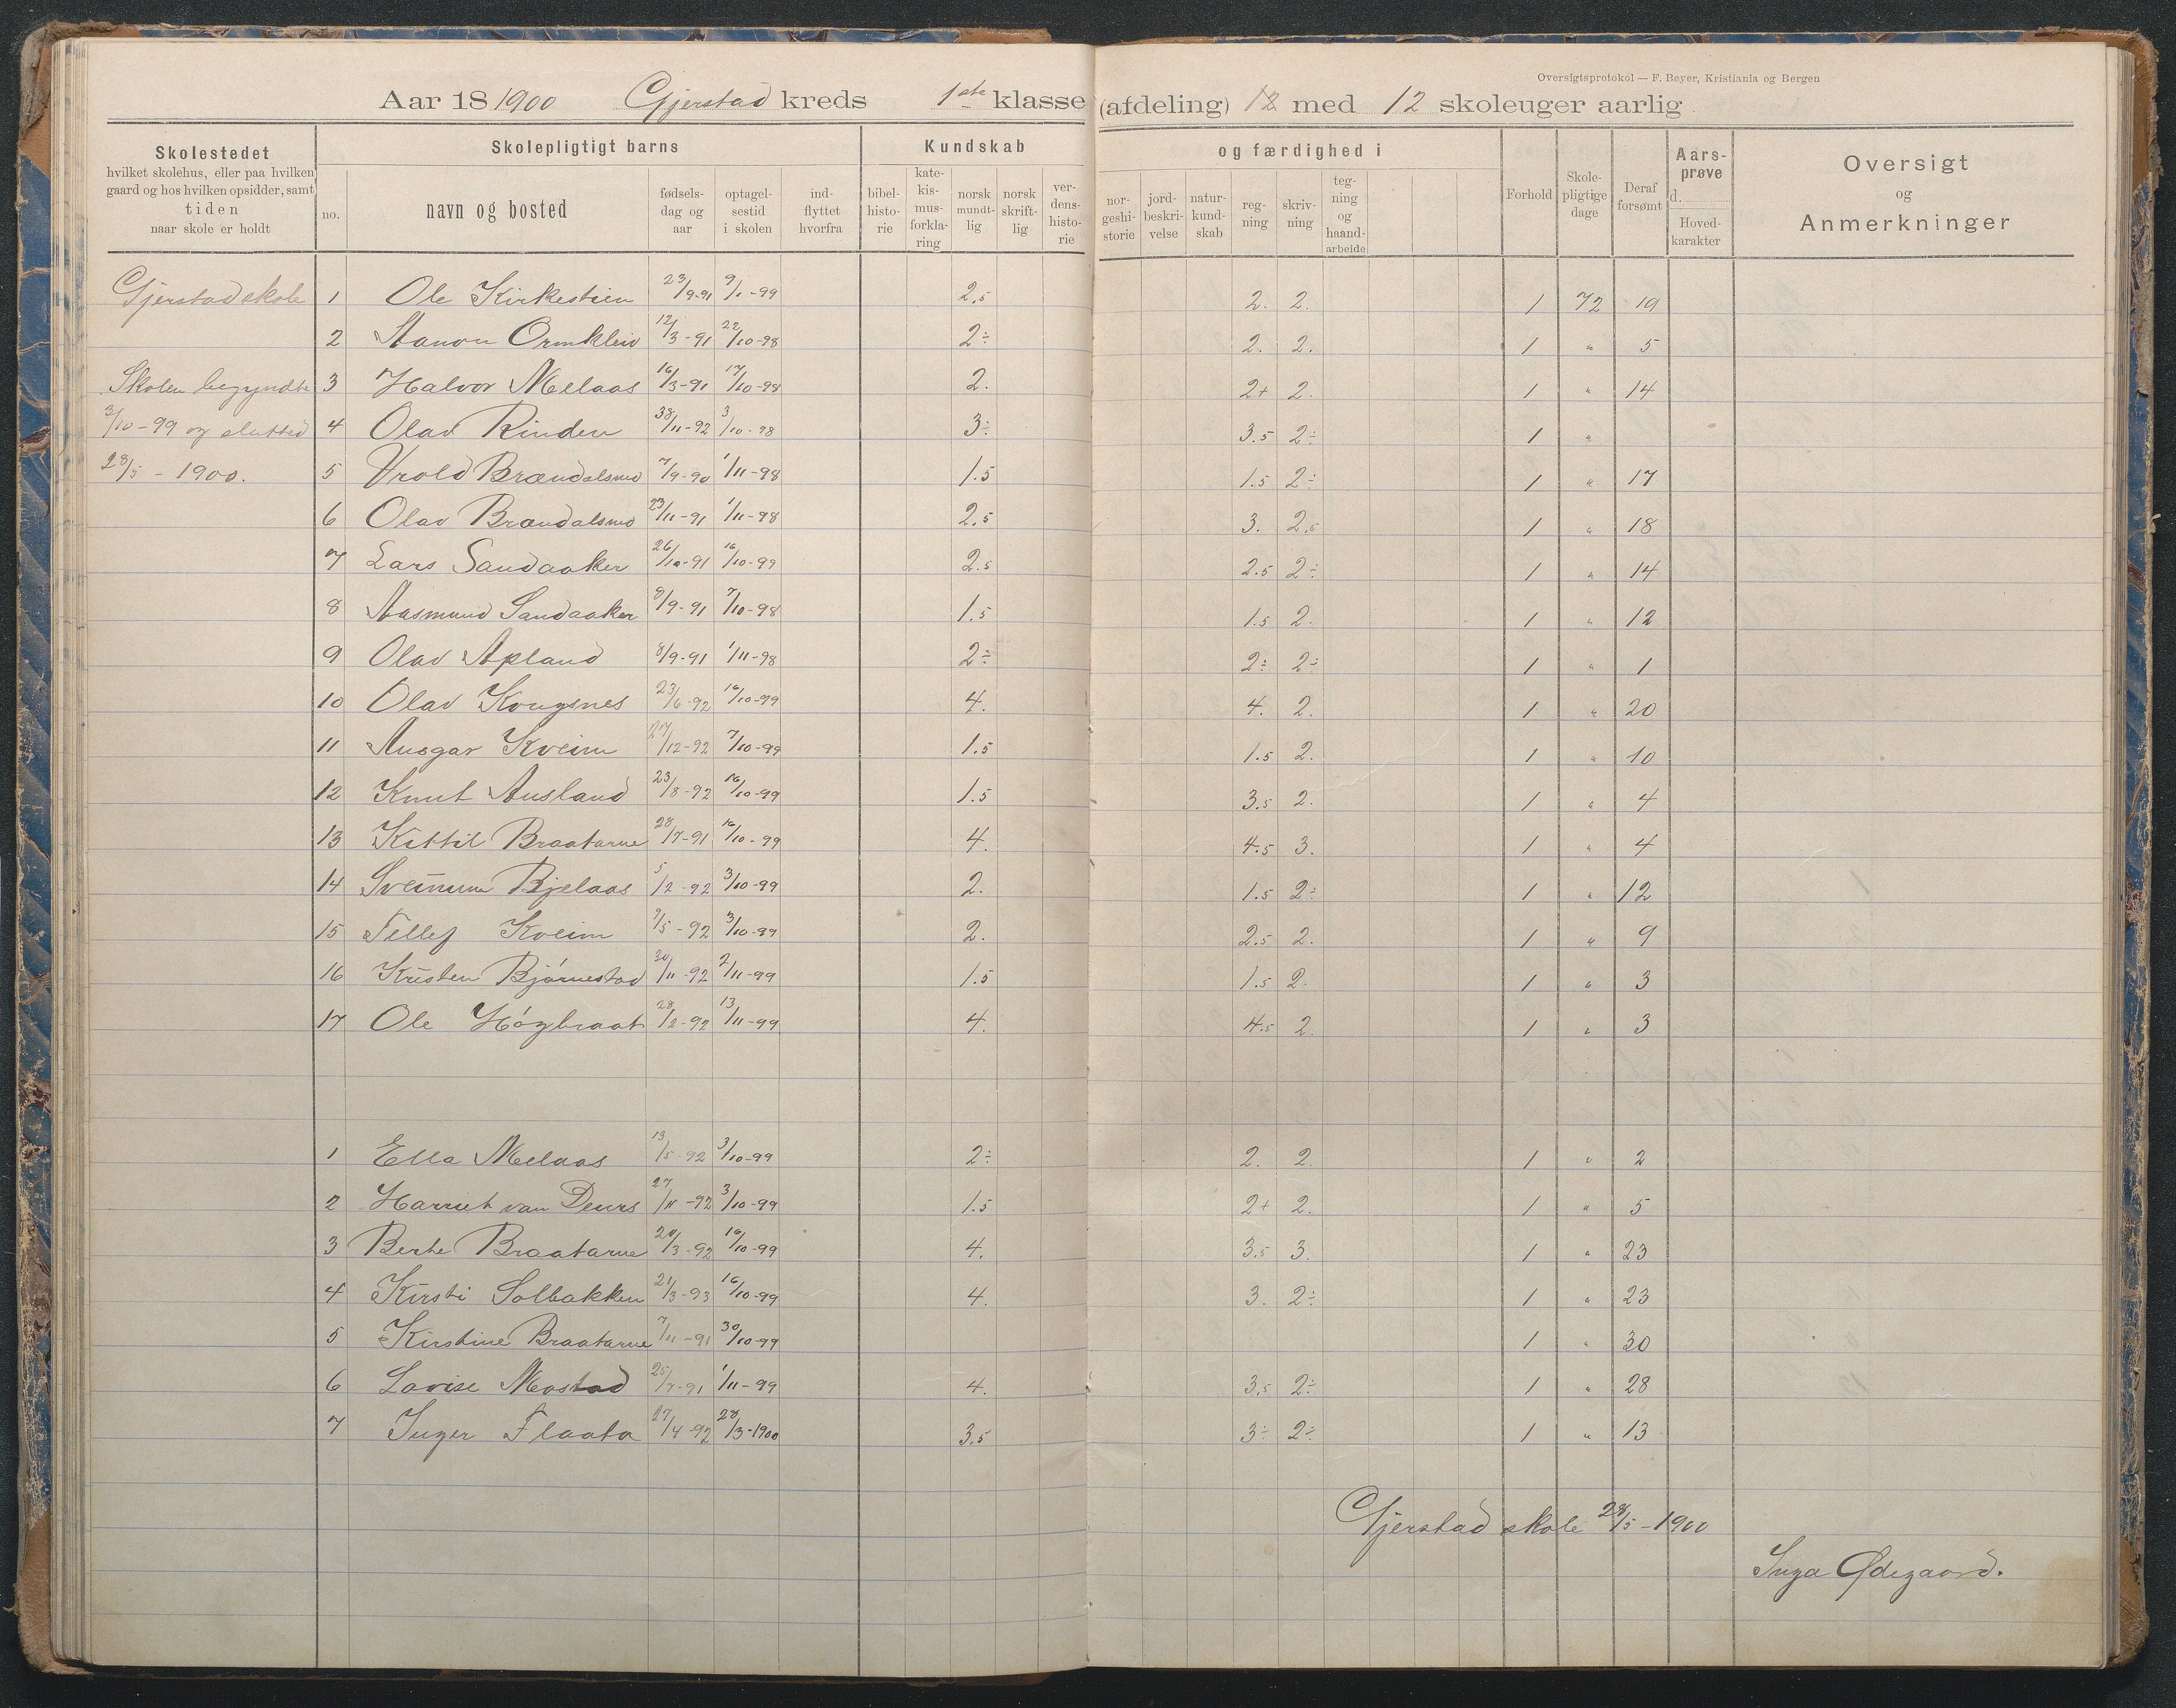 Oversigtsprotokol — F. Beyer, Kristiania og Bergen
Aar 18 1900 Gjerstad kreds 1ste klasse (afdeling) 12 med 12 skoleuger aarlig
Skolestedet
hvilket skolehus, eller paa hvilken
gaard og hos hvilken opsidder, samt
tiden
naar skole er holdt
Skolepligtigt barns
no.
navn og bosted
fødsels-
dag og
aar
optagel-
sestid
i skolen
ind-
flyttet
hvorfra
Kundskab
bibel-
histo-
rie
kate-
kis-
mus-
forkla-
ring
norsk
mundt-
lig
norsk
skrift-
lig
ver-
dens-
histo-
rie
og færdighed i
nor-
geshi-
storie
jord-
beskri-
velse
natur-
kund-
skab
reg-
ning
skriv-
ning
teg-
ning
og
haand-
arbeide
Forhold
Skole-
pligtige
dage
Deraf
forsømt
Aars-
prøve
d.
Hoved-
karakter
Oversigt
og
Anmerkninger
Gjerstad skole 1 Ole Kirkestien 23/9-91 9/1-99 2.5 2. 2. 1 72 19
2 Aanon Ormkleiv 12/3-91 22/10-98 2÷ 2. 2. 1 " 5
Skolen begyndte 3 Halvor Melaas 16/3-91 17/10-98 2. 2+ 2. 1 " 14
3/10-99 og slutted 4 Olav Rinden 38/11-92 3/10-98 3÷ 3.5 2÷ 1 "
28/5 - 1900. 5 Vrold Brændalsmo 7/9-90 1/11-98 1.5 1.5 2÷ 1 " 17
6 Olav Brændalsmo 23/11-91 1/11-98 2.5 3. 2.5 1 " 18
7 Lars Sandaaker 26/10-91 16/10-99 2.5 2.5 2÷ 1 " 14
8 Aasmund Sandaaker 9/9-91 7/10-98 1.5 1.5 2. 1 " 12
9 Olav Apland 8/9-91 1/11-98 2÷ 2÷ 2÷ 1 " 1
10 Olav Kongsnes 23/6-92 16/10-99 4. 4. 2. 1 " 20
11 Ansgar Kveim 27/12-92 7/10-99 1.5 1.5 2. 1 " 10
12 Knut Ausland 23/8-92 16/10-99 1.5 3.5 2. 1 " 4
13 Kittil Braatarne 28/7-91 16/10-99 4. 4.5 3. 1 " 4
14 Sveinum Bjelaas 5/2-92 3/10-99 2. 1.5 2÷ 1 " 12
15 Tellef Kveim 9/5-92 3/10-99 2. 2.5 2. 1 " 9
16 Kristen Bjørnestad 30/11-92 2/11-99 1.5 1.5 2. 1 " 3
17 Ole Høgbraat 28/2-92 13/11-99 4. 4.5 2. 1 " 3
1 Ella Melaas 13/5-92 3/10-99 2÷ 2. 2. 1 " 2
2 Harriet van Deurs 27/11-92 3/10-99 1.5 2+ 2. 1 " 5
3 Berte Braatarne 20/3-92 16/10-99 4. 3.5 3. 1 " 23
4 Kirsti Solbakken 21/3-93 16/10-99 4. 3. 2÷ 1 " 23
5 Kirstine Braatarne 7/11-91 30/10-99 1 " 30
6 Lovise Mostad 25/7-91 1/11-99 4. 3.5 2÷ 1 " 28
7 Inger Flaata 27/4-92 28/3-1900 3.5 3÷ 2÷ 1 " 13
Gjerstad skole 28/5-1900
Inga Ødegaard.